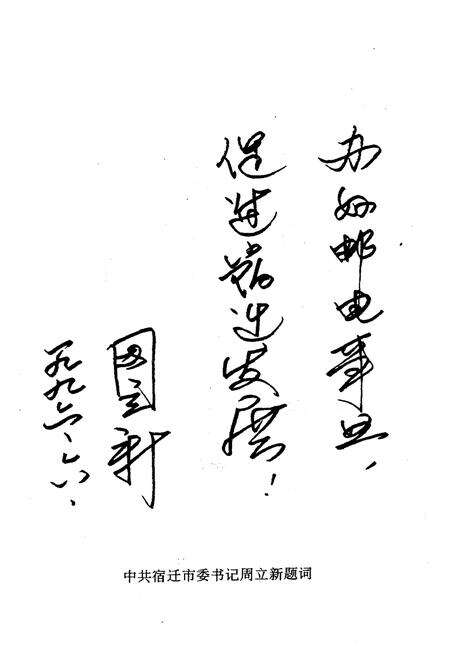 办好邮电事业，
促进宿迁发展！
周立新
一九九六.六.八.
中共宿迁市委书记周立新题词